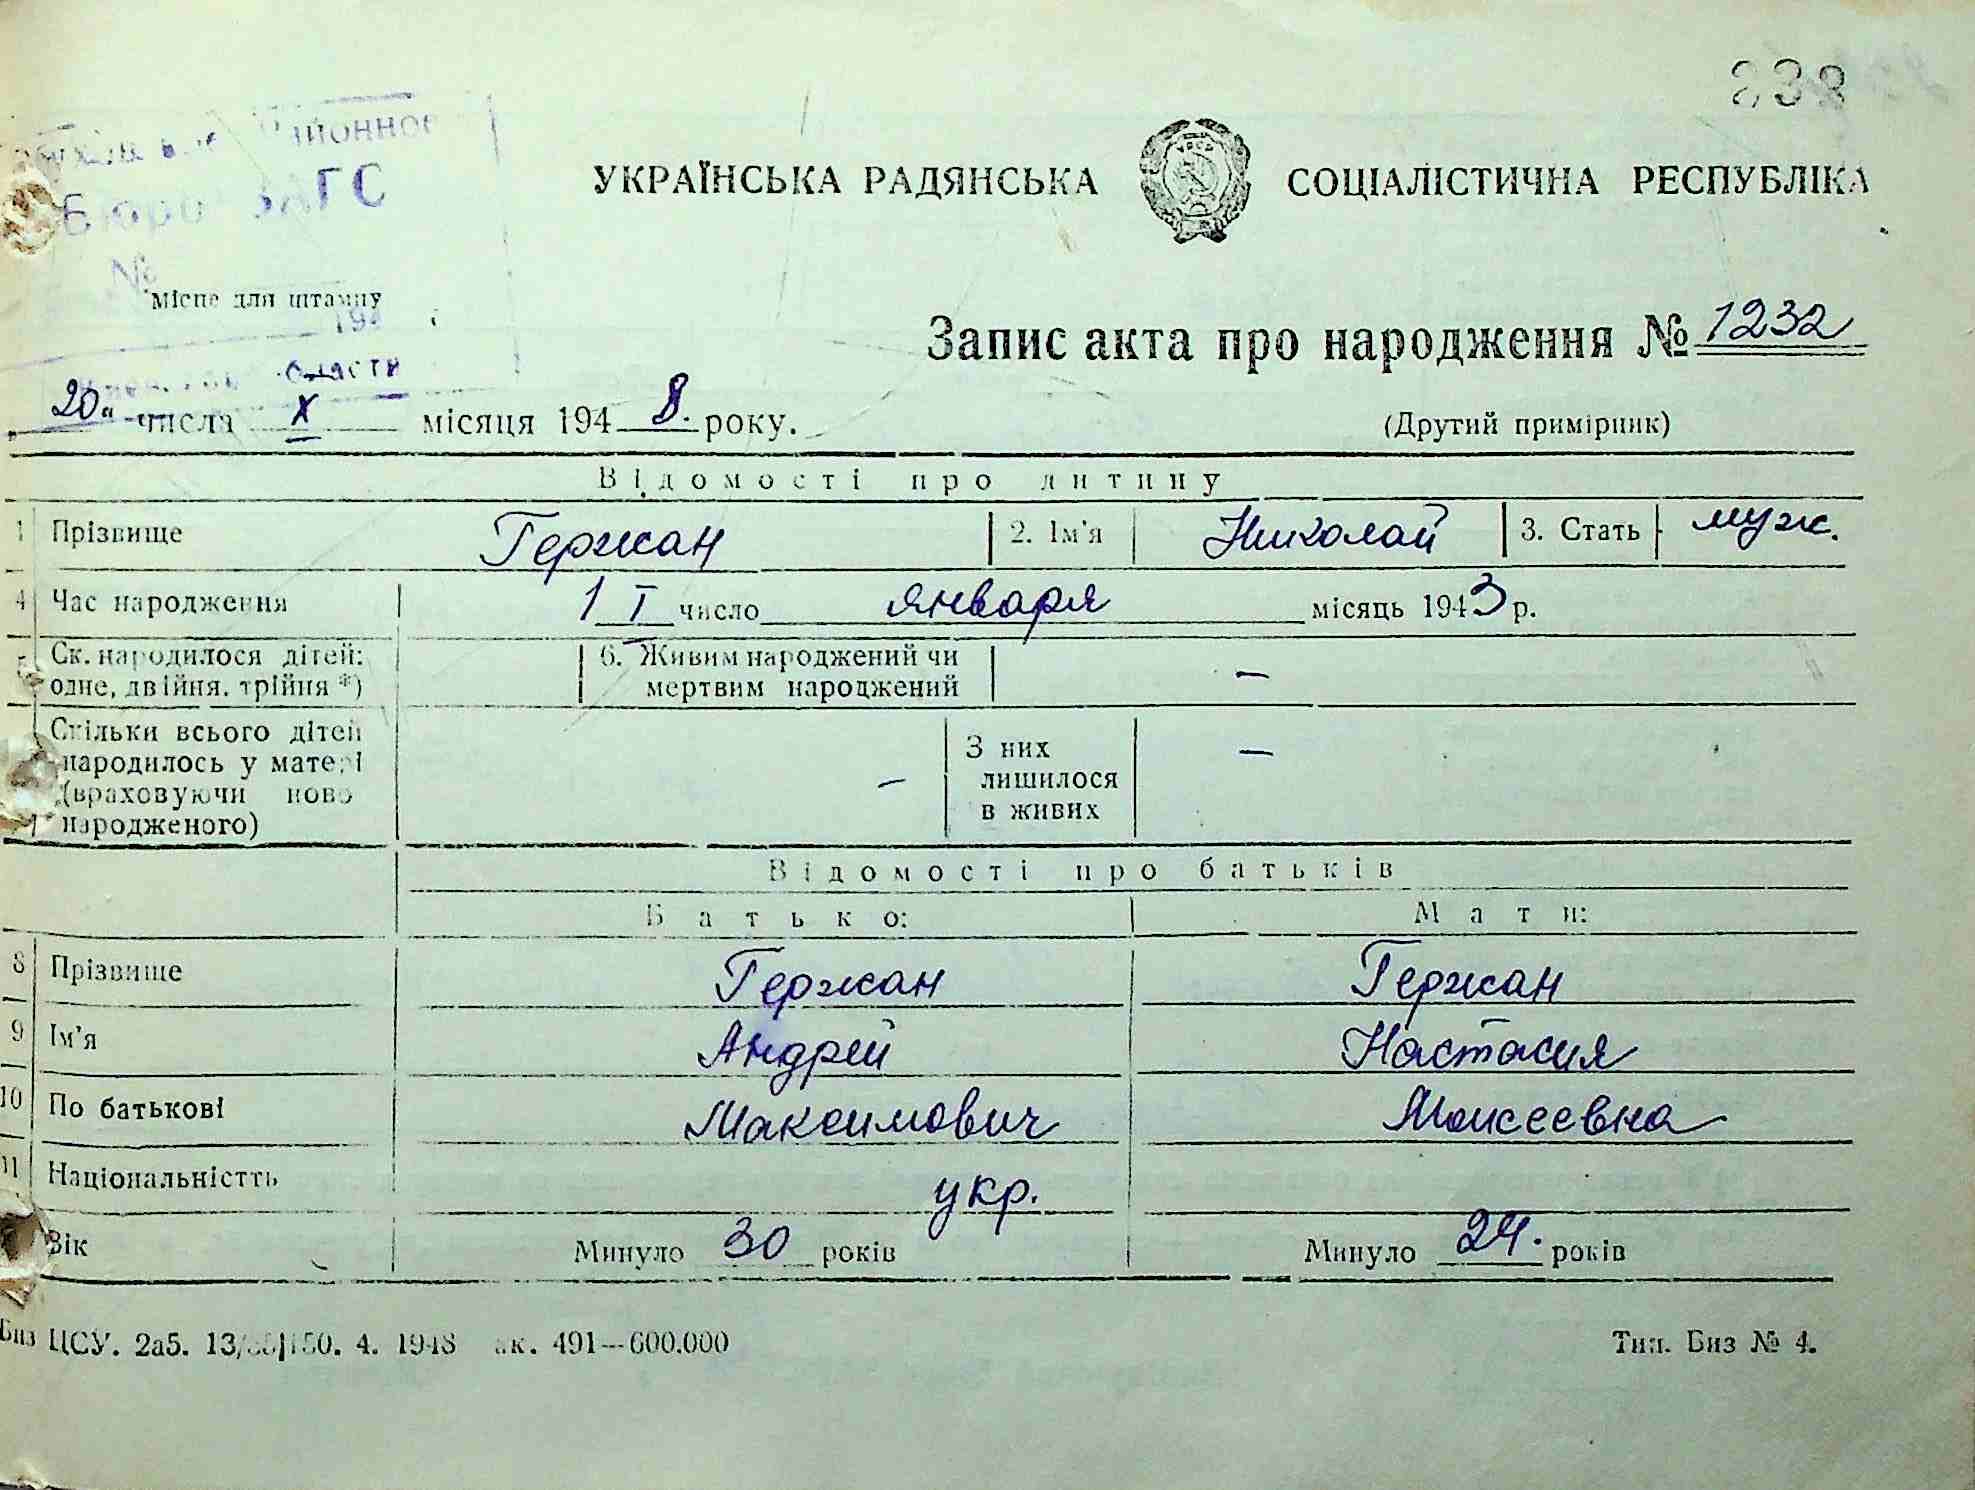 238
Районное
Бюро ЗАГС
№
УКРАЇНСЬКА РАДЯНСЬКА СОЦІАЛІСТИЧНА РЕСПУБЛІКА
Місце для штампу
194
Запис акта про народження № 1232
области
„20“ числа X місяця 1948. року.
(Другий примірник)
Відомості про дитину
1 Прізвище Гержан 2. Ім'я Николай 3. Стать муж.
4 Час народження 1 I число января місяць 1943 р.
Ск. народилося дітей: одне, двійня, трійня *) 6. Живим народжений чи мертвим народжений —
Скільки всього дітей народилось у матері (враховуючи ново народженого) — З них лишилося в живих —
Відомості про батьків
Батько: Мати:
8 Прізвище Гержан Гержан
9 Ім'я Андрей Настасия
10 По батькові Максимович Моисеевна
11 Національністть укр.
Вік Минуло 30 років Минуло 24. років
Биз ЦСУ. 2а5. 4. 1948 491—600.000
Тип. Биз № 4.